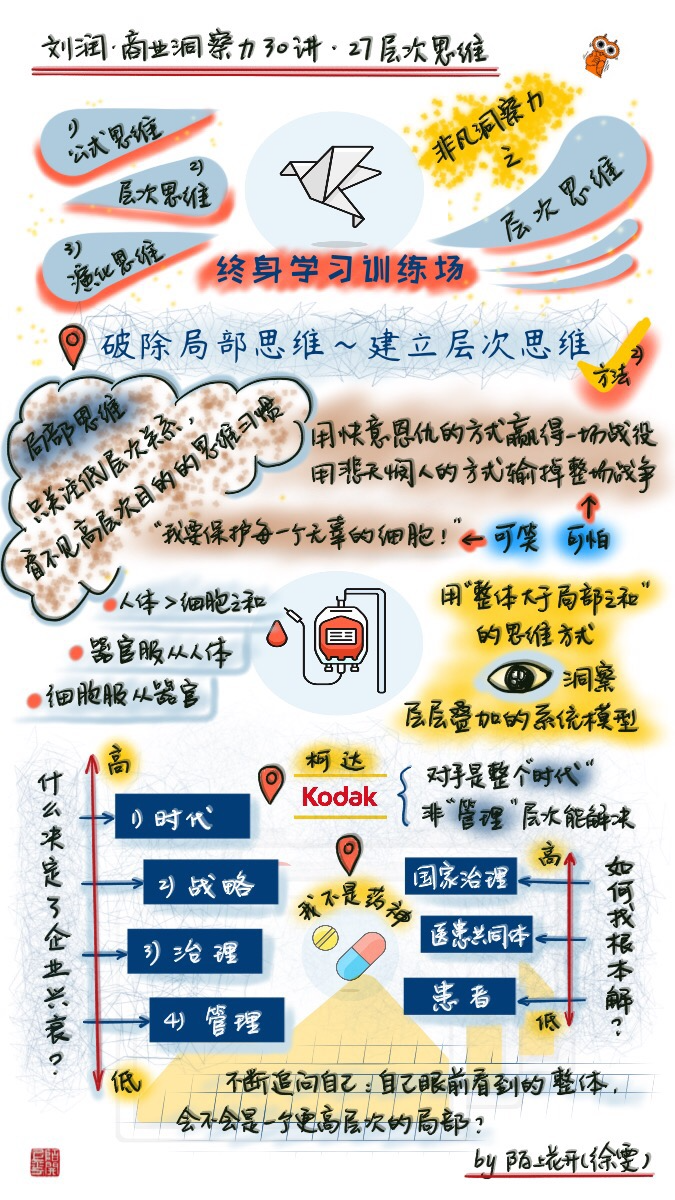 刘润·商业洞察力30讲·27层次思维
1)
公式思维
2)
层次思维
3)
演化思维
非凡洞察力
之
层次思维
终身学习训练场
破除局部思维~建立层次思维
方法2)
局部思维
只关注低层次关系,
看不见高层次目的的思维习惯
用快意恩仇的方式赢得一场战役
用悲天悯人的方式输掉整场战争
"我要保护每一个无辜的细胞!"
可笑 可怕
人体>细胞之和
器官服从人体
细胞服从器官
用"整体大于局部之和"
的思维方式
洞察
层层叠加的系统模型
什么决定了企业兴衰?
高
1)时代
2)战略
3)治理
4)管理
低
柯达
Kodak
对手是整个"时代"
非"管理"层次能解决
我不是药神
高
国家治理
医患共同体
患者
低
如何找根本解?
不断追问自己:自己眼前看到的整体,
会不会是一个更高层次的局部?
by 陌上花开(徐雯)